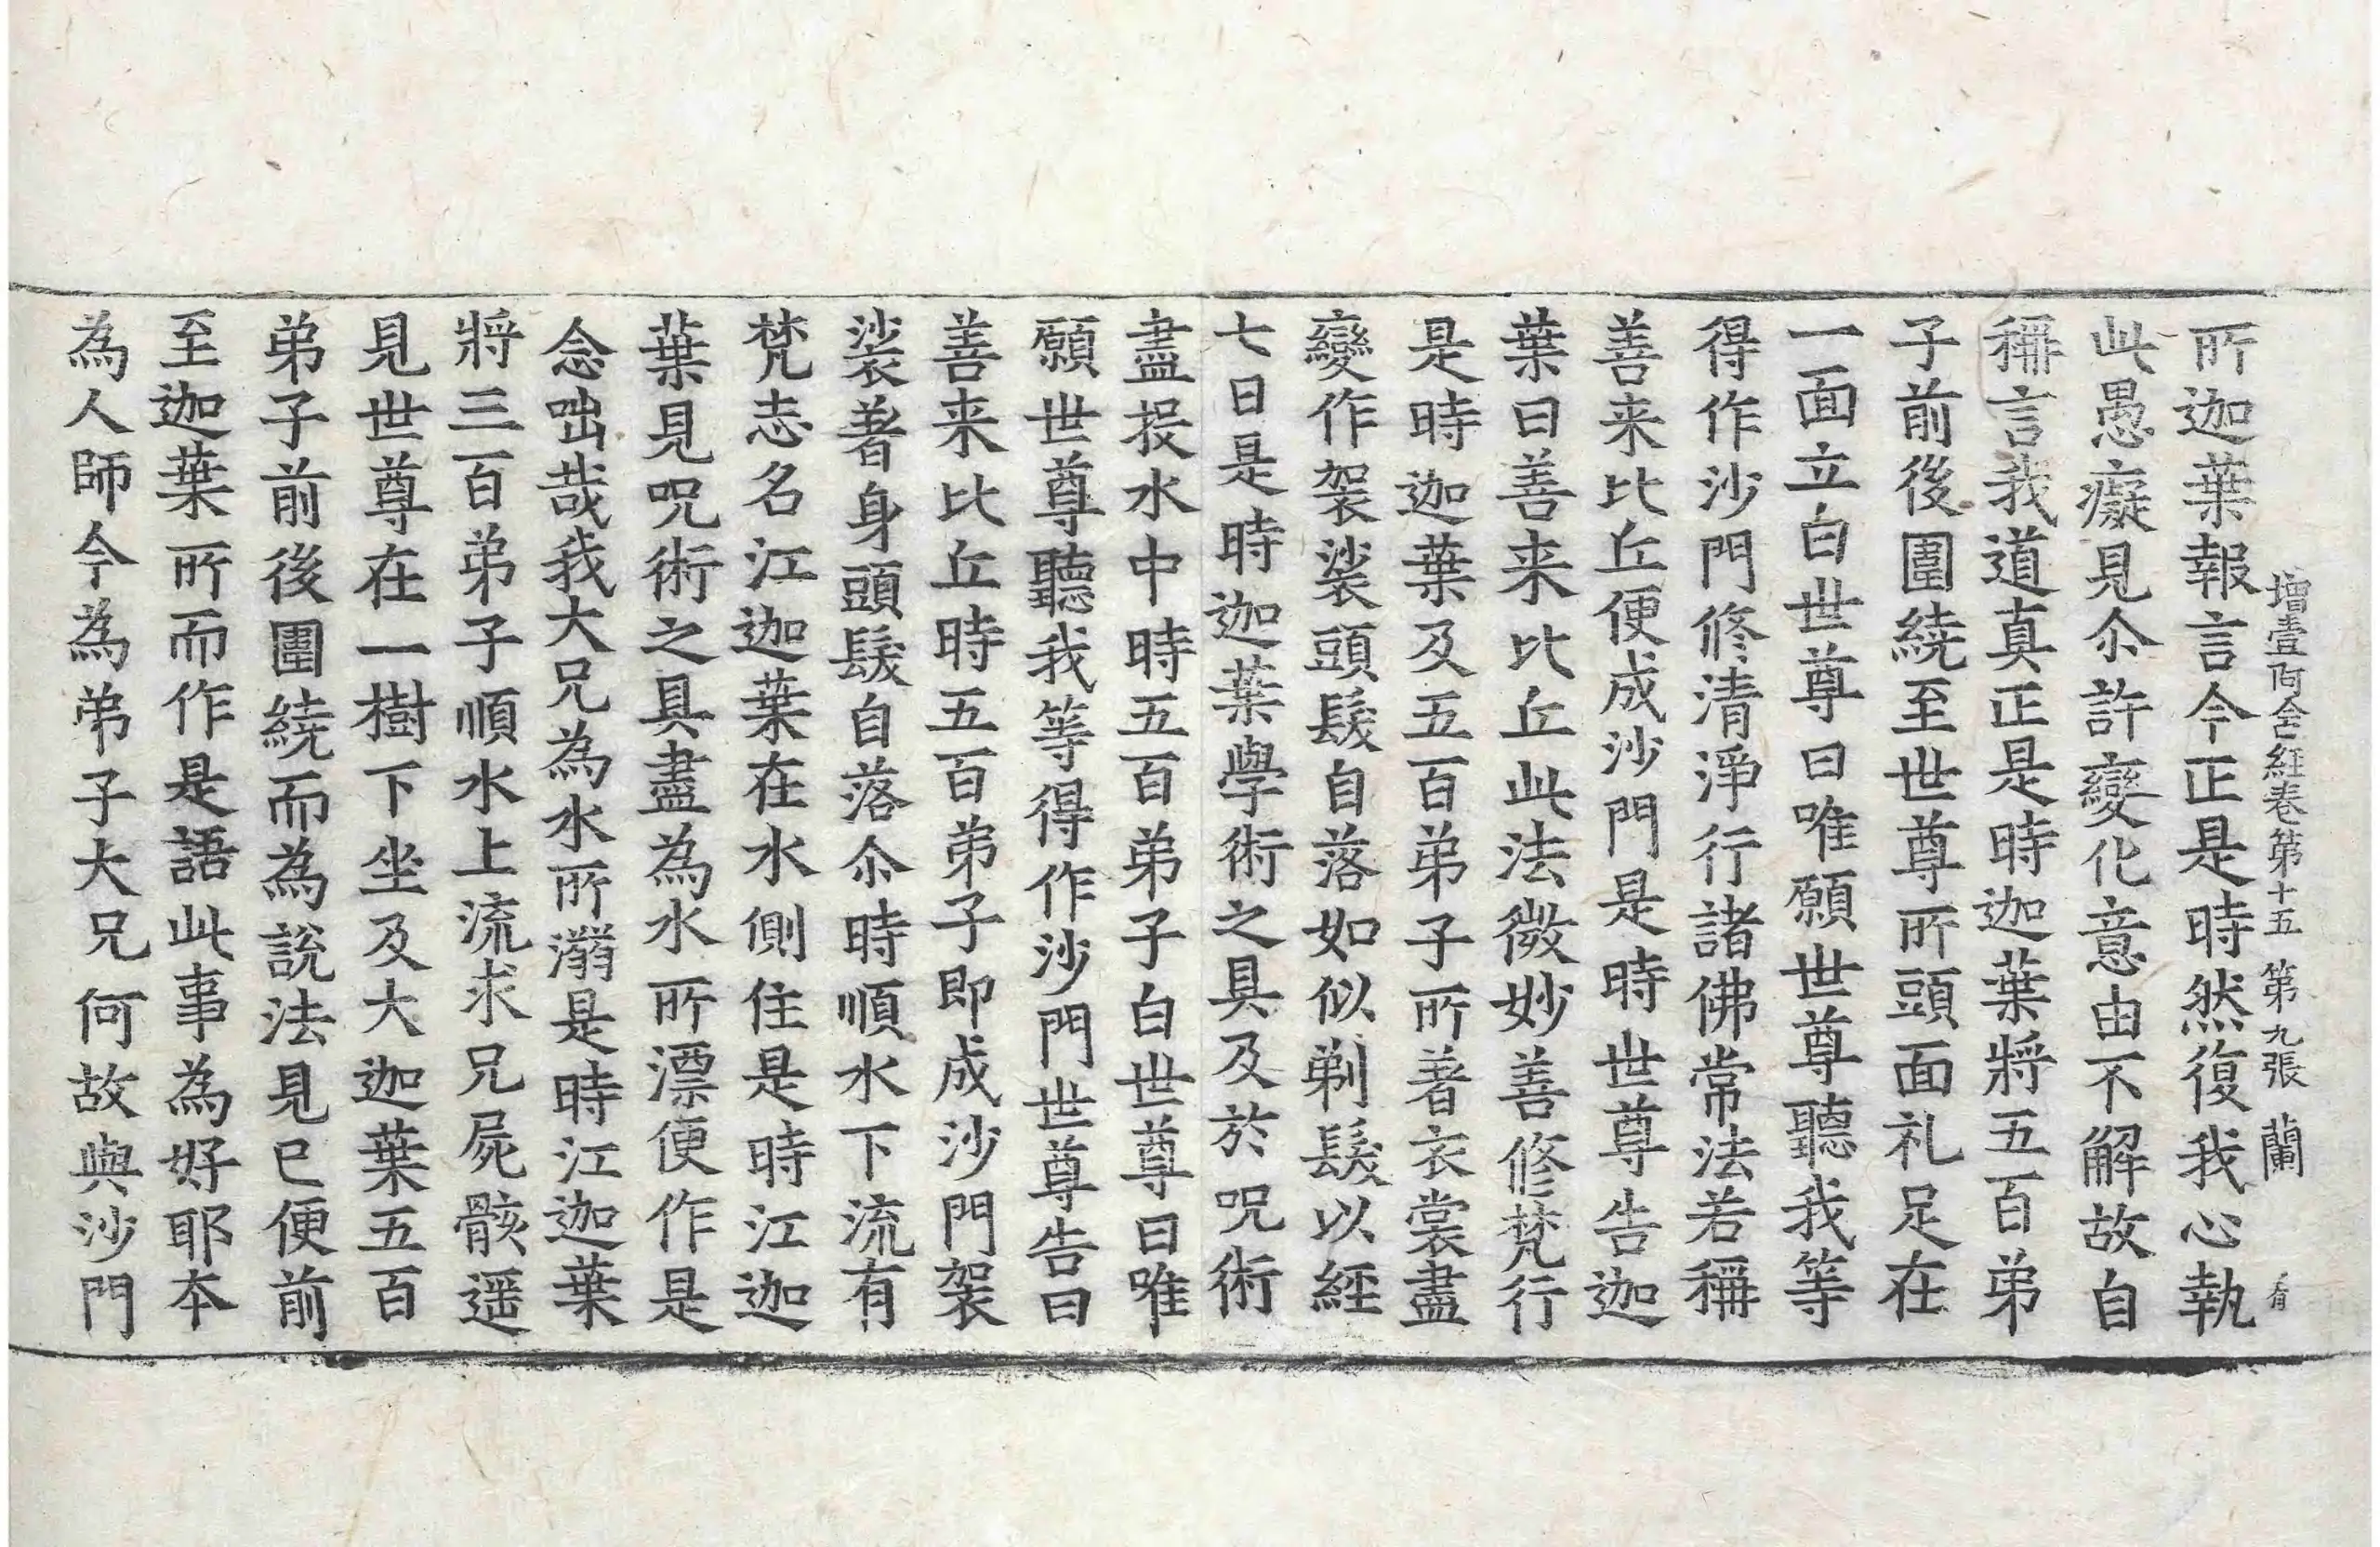 增壹阿含經卷第十五 第九張 蘭
所迦葉報言今正是時然復我心執
此愚癡見尒許變化意由不解故自
稱言我道真正是時迦葉將五百弟
子前後圍繞至世尊所頭面礼足在
一面立白世尊曰唯願世尊聽我等
得作沙門修清淨行諸佛常法若稱
善来比丘便成沙門是時世尊告迦
葉曰善来比丘此法微妙善修梵行
是時迦葉及五百弟子所著衣裳盡
變作袈裟頭髮自落如似剃髮以經
七日是時迦葉學術之具及於呪術
盡投水中時五百弟子白世尊曰唯
願世尊聽我等得作沙門世尊告曰
善来比丘時五百弟子即成沙門袈
裟著身頭髮自落尒時順水下流有
梵志名江迦葉在水側住是時江迦
葉見呪術之具盡為水所漂便作是
念咄哉我大兄為水所溺是時江迦葉
將三百弟子順水上流求兄屍骸遥
見世尊在一樹下坐及大迦葉五百
弟子前後圍繞而為說法見已便前
至迦葉所而作是語此事為好耶本
為人師今為弟子大兄何故與沙門